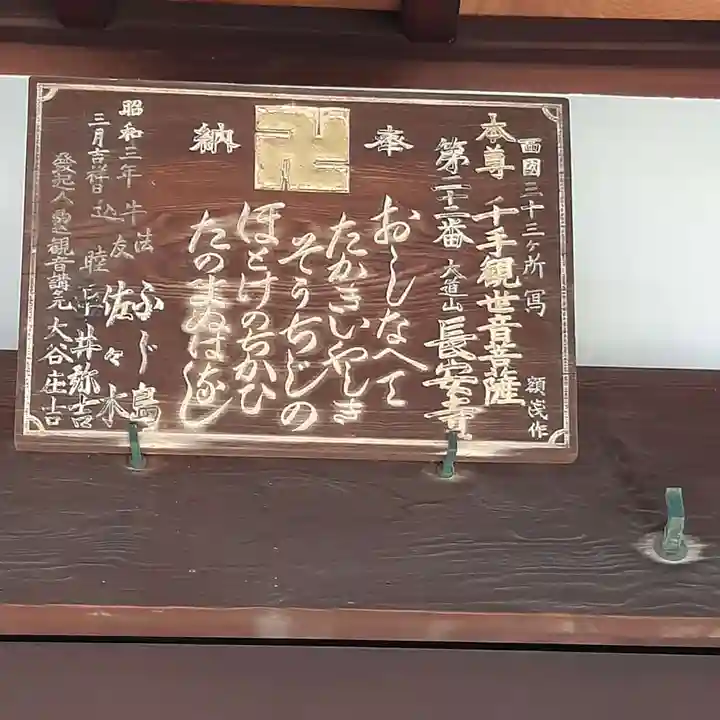 西國三十三ヶ所寫
額浅作
本尊 千手観世音菩薩
第二十二番 大道山 長安寺
奉納
おしなへて
たかきいやしき
そうちじの
ほとけのちかひ
たのまぬはなし
昭和三年牛込
三月吉祥
法友 ふじ島
佐々木
睦 井弥吉
發起人 観音講元 大谷庄吉